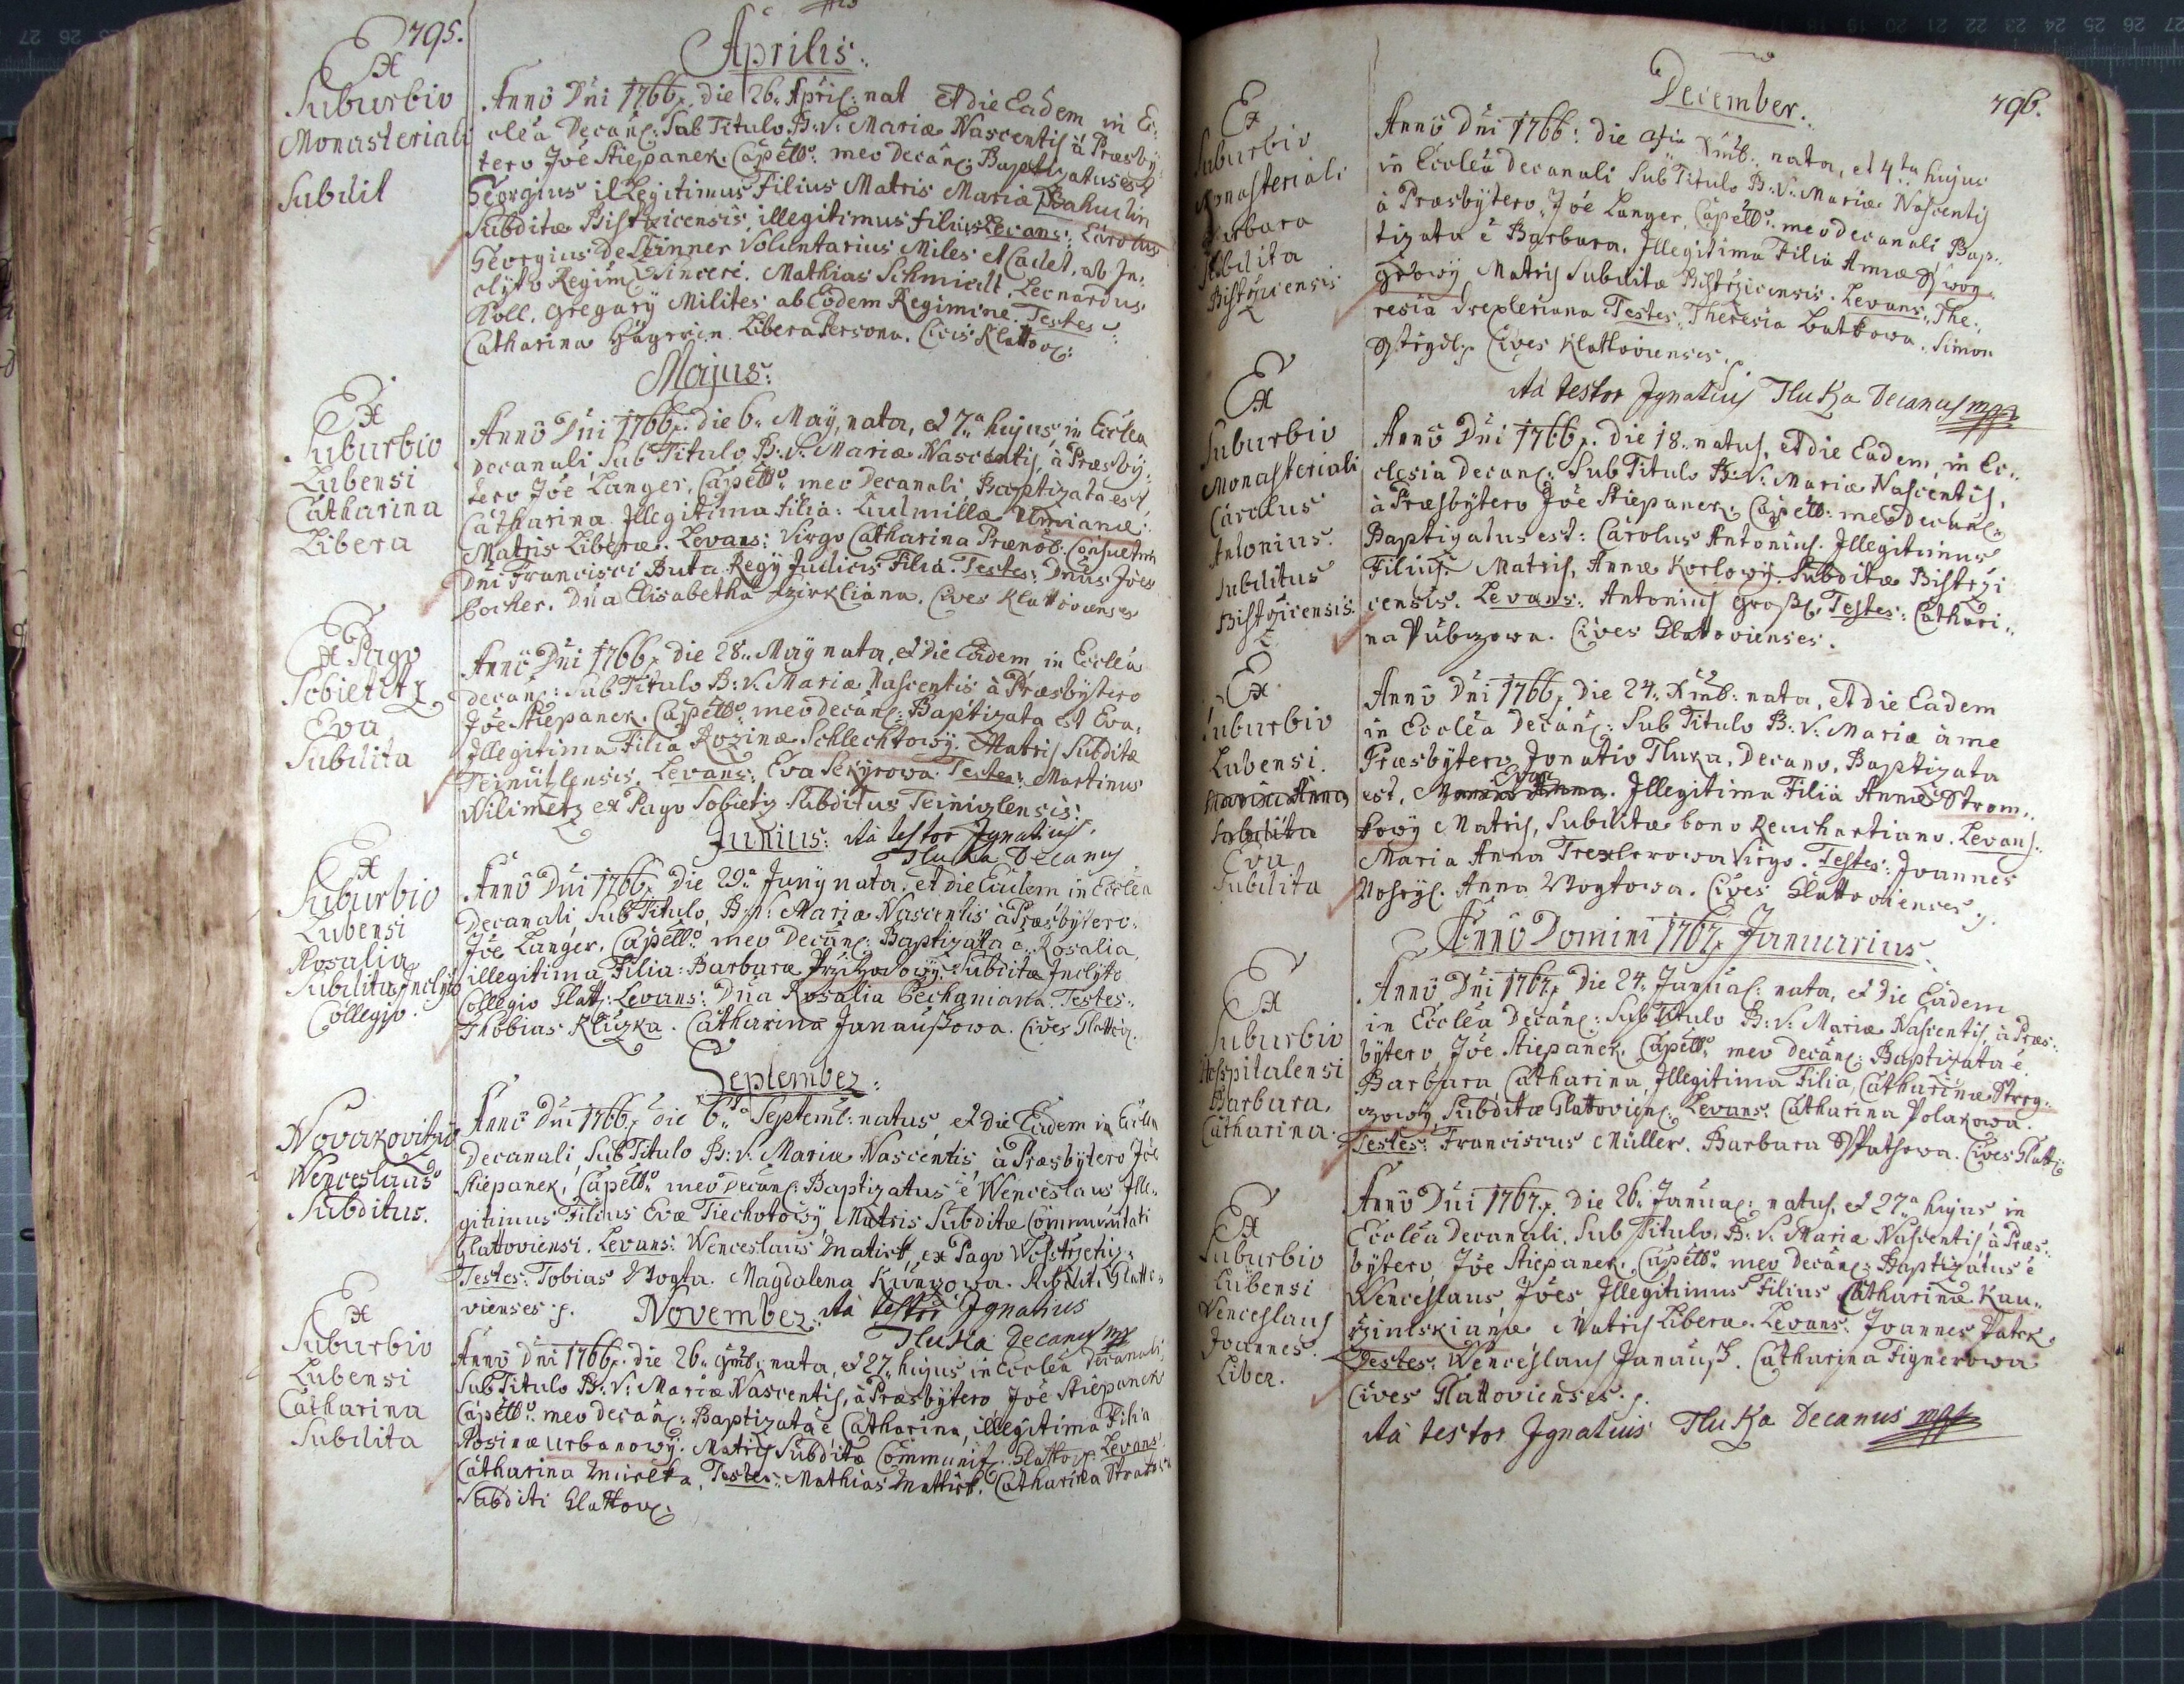 795.
Ex
Suburbio
Monasteriali
Subdit
Aprilis:
Anno Dni 1766. die 26. April: nat et die Eadem in Ec:
clea Decanl: Sub Titulo B: V: Mariæ Nascentis à Præsby:
tero Joe Stiepanek. Capello meo Decanl: Baptizatus est
Georgius illegitimus Filius Matris Mariæ
Subditæ Bistricensis, illegitimus filius Levans: Carolus
Georgius De Voluntarius Miles et Cadet, ab In,
clyto Regim: Mathias Schmidt, Leonardus
Koll. Gregarÿ Milites ab Eodem Regimine. Testes:
Catharina Libera Persona. Civis Klattov:
Majus:
Ex
Suburbio
Lubensi
Catharina
Libera
Anno Dni 1766. die 6. Maÿ, nata, et 7.a hujus, in Ecclea
Decanali Sub Titulo B: V. Mariæ Nascentis, à Præsby:
tero Joe Langer, Capello meo Decanali, Baptizata est
Catharina Illegitima Filia: Ludmillæ
Matris Liberæ. Levans: Virgo Catharina Prænob: Consult:
Dni Francisci Buta Regÿ Judicis Filia. Testes: Dnus Joes
Cocher. Dna Elisabetha Zirkliana. Cives Klattovienses
Ex Pago
Sobietitz
Eva
Subdita
Anno Dni 1766. die 28. Maÿ nata, et die Eadem in Ecclea
Decanl: Sub Titulo B: V. Mariæ Nascentis à Præsbytero
Joe Stiepanek. Capello meo Decanl: Baptizata est Eva,
Illegitima Filia Rozinæ Schlechtowÿ. Matris Subditæ
Teinitzlensis. Levans: Eva Sekyrowa. Testes: Martinus
Wilimetz ex Pago Sobietiz Subditus Teinizlensis:
Junius: Ita testor Ignatius
Tluka Decanus
Ex
Suburbio
Lubensi
Rosalia
Subdita Inclyto
Collegio.
Anno Dni 1766. Die 29.a Junÿ nata, et die Eadem in Ecclea
Decanali Sub Titulo B: V: Mariæ Nascentis à Præsbytero
Joe Langer. Capello meo Decanl: Baptizata e. Rosalia,
illegitima Filia: Barbaræ Subditæ Inclyto
Collegio Glatt: Levans: Dna Rosalia Cechaniana. Testes:
Thobias Kliczka. Catharina Janauschowa. Cives Glattov:
September:
Novakovitzio
Wenceslaus
Subditus.
Anno Dni 1766. die 6.ta Septemb: natus, et die Eadem in Ecclea
Decanali Sub Titulo B: V: Mariæ Nascentis à Præsbytero Joe
Stiepanek, Capello meo Decanl: Baptizatus e Wenceslaus Ille,
gitimus Filius Evæ Tiechotowÿ Matris Subditæ Communitati
Glattoviensi. Levans: Wenceslaus Matiek, ex Pago
Testes: Tobias Wogta. Magdalena Kunzowa. Subditi Glatto:
vienses.
November: Ita testor Ignatius
Tluka Decanus mp
Ex
Suburbio
Lubensi
Catharina
Subdita
Anno Dni 1766. die 26. 9mb: nata, et 27. hujus in Ecclea Decanali
Sub Titulo B: V: Mariæ Nascentis, à Præsbytero Joe Stiepanek
Capello meo Decanl: Baptizata e Catharina, illegitima Filia
Rosinæ Urbanowÿ. Matris Subditæ Communit: Glattov: Levans
Catharina Testes: Mathias Catharina
Subditi Glattov:
796.
December:
Ex
Suburbio
Monasteriali
Barbara
Subdita
Bistrzicensis
Anno Dni 1766: die Xmb: nata, et 4.ta hujus
in Ecclea Decanali Sub Titulo B: V: Mariæ Nascentis
à Præsbytero Joe Langer, Capello meo decanali, Bap:
tizata e Barbara. Illegitima Filia Annæ
Matris Subditæ Bistrzicensis. Levans: The:
resia Drexleriana Testes: Theresia Simon
Cives Klattovienses.
Ita testor Ignatius Tluka Decanus mpa
Ex
Suburbio
Monasteriali
Carolus
Antonius.
Subditus
Bistrzicensis
Anno Dni 1766. Die 18. natus, et die Eadem, in Ec:
clesia Decanl: Sub Titulo B: V: Mariæ Nascentis,
à Præsbytero Joe Stiepanek. Capello: meo decanl:
Baptizatus est: Carolus Antonius. Illegitimus
Filius. Matris, Annæ Korlowÿ. Subditæ Bistrzi
censis. Levans: Antonius Groß, Testes: Cathari:
na Cives Glattovienses.
Ex
Suburbio
Lubensi.
Maria Anna
Subdita
Eva
Subdita
Anno Dni 1766. Die 24. Xmb: nata, et die Eadem
in Ecclea Decanl: Sub Titulo B: V: Mariæ à me
Præsbytero Ignatio Tluka, Decano, Baptizata
Eva
est, Maria Anna. Illegitima Filia Annæ Strom:
kowÿ Matris, Subditæ bono Levans:
Maria Anna Trexlerowa Virgo. Testes: Joannes
Anna Wogtowa. Cives Glattovienses.
Anno Domini 1767. Januarius.
Ex
Suburbio
Hospitalensi
Barbara,
Catharina.
Anno Dni 1767. Die 24. Januar: nata, et die Eadem
in Ecclea Decanl: Sub Titulo B: V: Mariæ Nascentis, à Præs:
bytero Joe Stiepanek. Capello meo decanl: Baptizata e
Barbara, Catharina, Illegitima Filia, Catharinæ
Subditæ Glattovien: Levans: Catharina Polakowa.
Testes: Franciscus Müller. Barbara Cives Glatt:
Ex
Suburbio
Lubensi
Wenceslaus
Joannes.
Liber.
Anno Dni 1767. Die 26. Januar: natus, et 27.a hujus, in
Ecclea Decanali, Sub Titulo. B: V. Mariæ Nascentis à Præs:
bytero Joe Stiepanek. Capello meo Decanl: Baptizatus e
Wenceslaus, Joes Illegitimus Filius Catharinæ Kau:
Matris Liberæ. Levans: Joannes Patek.
Testes: Wenceslaus Janausch. Catharina Fignerowa
Cives Glattovienses.
Ita testor Ignatius Tluka Decanus mpa